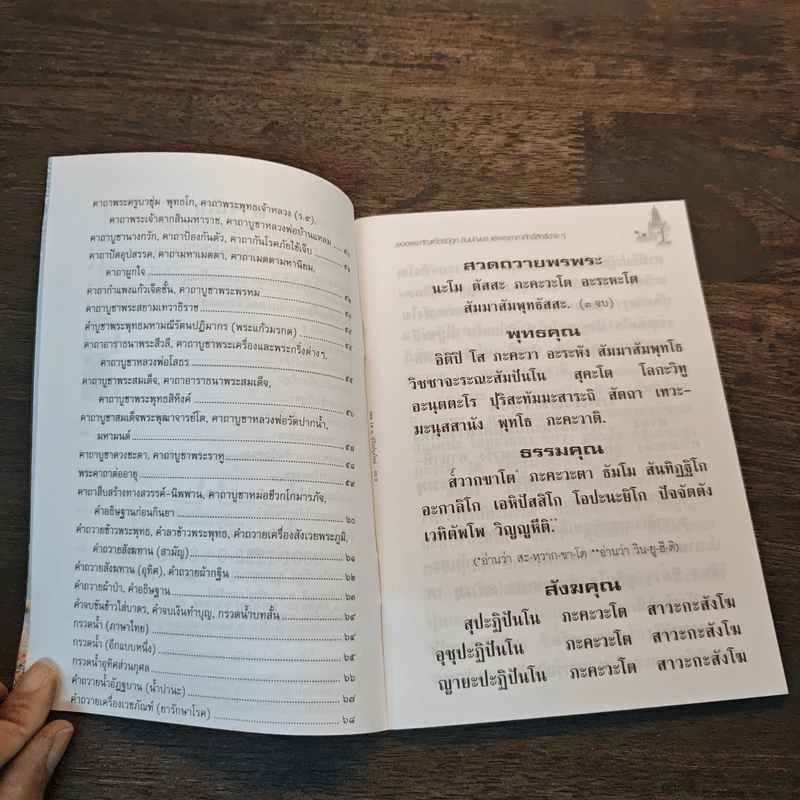 คาถาพระครูบาชุ่ม พุทธโก, คาถาพระพุทธเจ้าหลวง (ร.๕),
คาถาพระเจ้าตากสินมหาราช, คาถาบูชาหลวงพ่อบ้านแหลม
คาถาบูชานางกวัก, คาถาป้องกันตัว, คาถากันโรคภัยไข้เจ็บ
คาถาปัดอุปสรรค, คาถามหาเมตตา, คาถาเมตตามหานิยม,
คาถาผูกใจ
คาถากำแพงแก้วเจ็ดชั้น, คาถาบูชาพระพรหม
คาถาบูชาพระสยามเทวาธิราช
คำบูชาพระพุทธมหามณีรัตนปฏิมากร (พระแก้วมรกต)
คาถาอาราธนาพระสีวลี, คาถาบูชาพระเครื่องและพระกริ่งต่างๆ,
คาถาบูชาหลวงพ่อโสธร
คาถาบูชาพระสมเด็จ, คาถาอาราธนาพระสมเด็จ,
คาถาบูชาพระพุทธสิหิงค์ ๕๖
คาถาบูชาสมเด็จพระพุฒาจารย์โต, คาถาบูชาหลวงพ่อวัดปากน้ำ,
มหามนต์ ๕๘
คาถาบูชาดวงชะตา, คาถาบูชาพระราหู ๕๘
พระคาถาต่ออายุ ๕๙
คาถาสืบสร้างทางสวรรค์-นิพพาน, คาถาบูชาหมอชีวกโกมารภัจ,
คำอธิษฐานก่อนกินยา ๖๐
คำถวายข้าวพระพุทธ, คำลาข้าวพระพุทธ, คำถวายเครื่องสังเวยพระภูมิ,
คำถวายสังฆทาน (สามัญ) ๖๑
คำถวายสังฆทาน (อุทิศ), คำถวายผ้ากฐิน ๖๒
คำถวายผ้าป่า, คำอธิษฐาน ๖๓
คำจบขันข้าวใส่บาตร, คำจบเงินทำบุญ, กรวดน้ำบทสั้น ๖๔
กรวดน้ำ (ภาษาไทย) ๖๔
กรวดน้ำ (อีกแบบหนึ่ง) ๖๕
กรวดน้ำอุทิศส่วนกุศล ๖๖
คำถวายน้ำอัฏฐบาน (น้ำปานะ) ๖๗
คำถวายเครื่องเวชภัณฑ์ (ยารักษาโรค) ๖๘
ยอดพระกัณฑ์ไตรปิฎก ชินบัญชร และพระคาถาศักดิ์สิทธิ์ต่าง ๆ
สวดถวายพรพระ
นะโม ตัสสะ ภะคะวะโต อะระหะโต
สัมมาสัมพุทธัสสะ. (๓ จบ)
พุทธคุณ
อิติปิ โส ภะคะวา อะระหัง สัมมาสัมพุทโธ
วิชชาจะระณะสัมปันโน สุคะโต โลกะวิทู
อะนุตตะโร ปุริสะทัมมะสาระถิ สัตถา เทวะ-
มะนุสสานัง พุทโธ ภะคะวาติ.
ธรรมคุณ
ส๎วากขาโต* ภะคะวะตา ธัมโม สันทิฏฐิโก
อะกาลิโก เอหิปัสสิโก โอปะนะยิโก ปัจจัตตัง
เวทิตัพโพ วิญญูหีติ.**
(*อ่านว่า สะ-หฺวาก-ขา-โต **อ่านว่า วิน-ยู-ฮี-ติ)
สังฆคุณ
สุปะฏิปันโน ภะคะวะโต สาวะกะสังโฆ
อุชุปะฏิปันโน ภะคะวะโต สาวะกะสังโฆ
ญายะปะฏิปันโน ภะคะวะโต สาวะกะสังโฆ